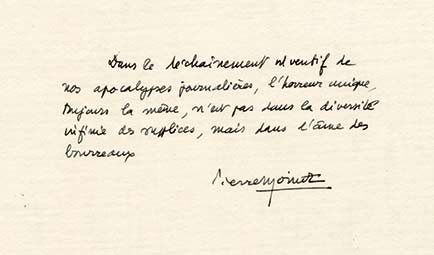 Dans le déchainement inventif de
nos apocalypses journalières, l'horreur unique,
toujours la même, n'est pas dans la diversité
infinie des supplices, mais dans l'âme des
bourreaux
Pierre Moinot